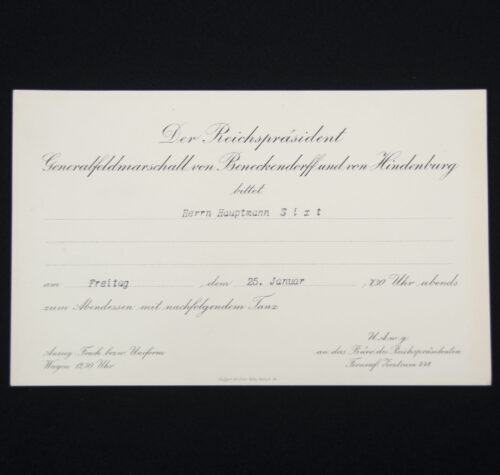 Der Reichspräsident
Generalfeldmarschall von Beneckendorff und von Hindenburg
bittet
Herrn Hauptmann Sixt
am Freitag, dem 25. Januar, 7.30 Uhr abends
zum Abendessen mit nachfolgendem Tanz
U. A. w. g.
Anzug: Frack bezw. Uniform
an das Büro des Reichspräsidenten
Wagen 12.30 Uhr
Fernruf: Zentrum 248